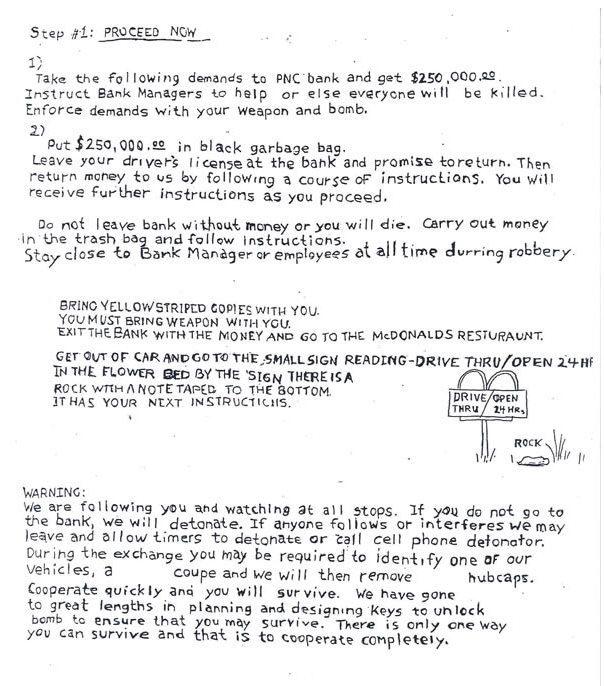 Step #1: PROCEED NOW
1)
Take the following demands to PNC bank and get $250,000.00.
Instruct Bank Managers to help or else everyone will be killed.
Enforce demands with your weapon and bomb.
2)
Put $250,000.00 in black garbage bag.
Leave your driver's license at the bank and promise to return. Then
return money to us by following a course of instructions. You will
receive further instructions as you proceed.
Do not leave bank without money or you will die. Carry out money
in the trash bag and follow instructions.
Stay close to Bank Manager or employees at all time durring robbery.
BRING YELLOW STRIPED COPIES WITH YOU.
YOU MUST BRING WEAPON WITH YOU.
EXIT THE BANK WITH THE MONEY AND GO TO THE McDONALDS RESTURAUNT.
GET OUT OF CAR AND GO TO THE SMALL SIGN READING-DRIVE THRU/OPEN 24 HR
IN THE FLOWER BED BY THE SIGN THERE IS A
ROCK WITH A NOTE TAPED TO THE BOTTOM.
IT HAS YOUR NEXT INSTRUCTIONS.
DRIVE/OPEN
THRU/24 HRS
ROCK
WARNING:
We are following you and watching at all stops. If you do not go to
the bank, we will detonate. If anyone follows or interferes we may
leave and allow timers to detonate or call cell phone detonator.
During the exchange you may be required to identify one of our
vehicles, a coupe and we will then remove hubcaps.
Cooperate quickly and you will survive. We have gone
to great lengths in planning and designing keys to unlock
bomb to ensure that you may survive. There is only one way
you can survive and that is to cooperate completely.